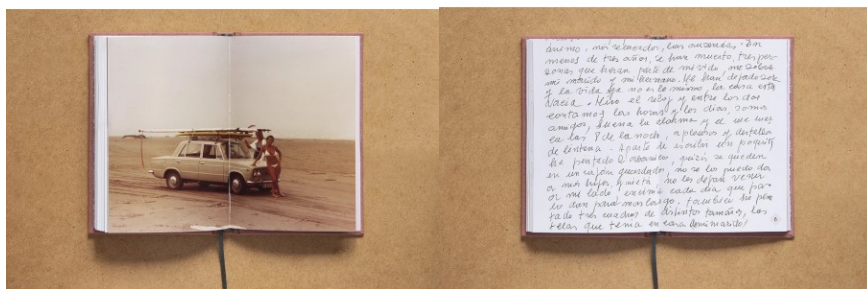 ánimo. mis recuerdos, las ausencias. En
menos de tres años, se han muerto, tres per-
sonas que hacían parte de mi vida, me sobra
mi marido y mi hermano. He han dejado sola
y la vida ya no es lo mismo, la casa está
vacía. Miro el reloj y entre los dos
contamos las horas y los días, somos
amigos, suena la alarma y el me
en las 8 de la noche, aplausos y destellos
de linterna. Aparte de escribir un poquito
he pintado 2 abanicos, quizás se queden
en un cajón guardados, no se los puedo dar
a mis hijos, y nieta, no les dejan venir
a mi lado, encima cada día que pasa
lo dan para mas largo. también he pin
tado tres cuadros de distintos tamaños, las
telas que tenía en casa
6